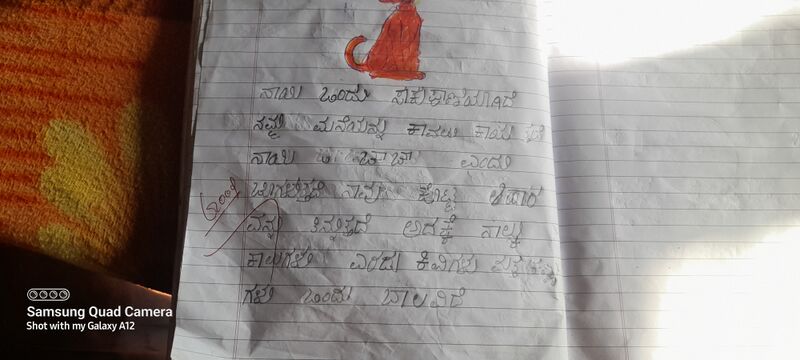 ನಾಯಿ ಒಂದು ಸಾಕುಪ್ರಾಣಿಯಾಗಿದೆ
ನಮ್ಮ ಮನೆಯನ್ನು ಕಾವಲು ಕಾಯುತ್ತದೆ
ನಾಯಿ ಎಂದು
ಬೊಗಳುತ್ತದೆ ನಾವು ಕೊಟ್ಟ ಆಹಾರ
ವನ್ನು ತಿನ್ನುತ್ತದೆ ಅದಕ್ಕೆ ನಾಲ್ಕು
ಕಾಲುಗಳು ಎರಡು ಕಿವಿಗಳು ಮತ್ತು ಕಣ್ಣು
ಗಳು ಒಂದು ಬಾಲವಿದೆ
Good
Samsung Quad Camera
Shot with my Galaxy A12